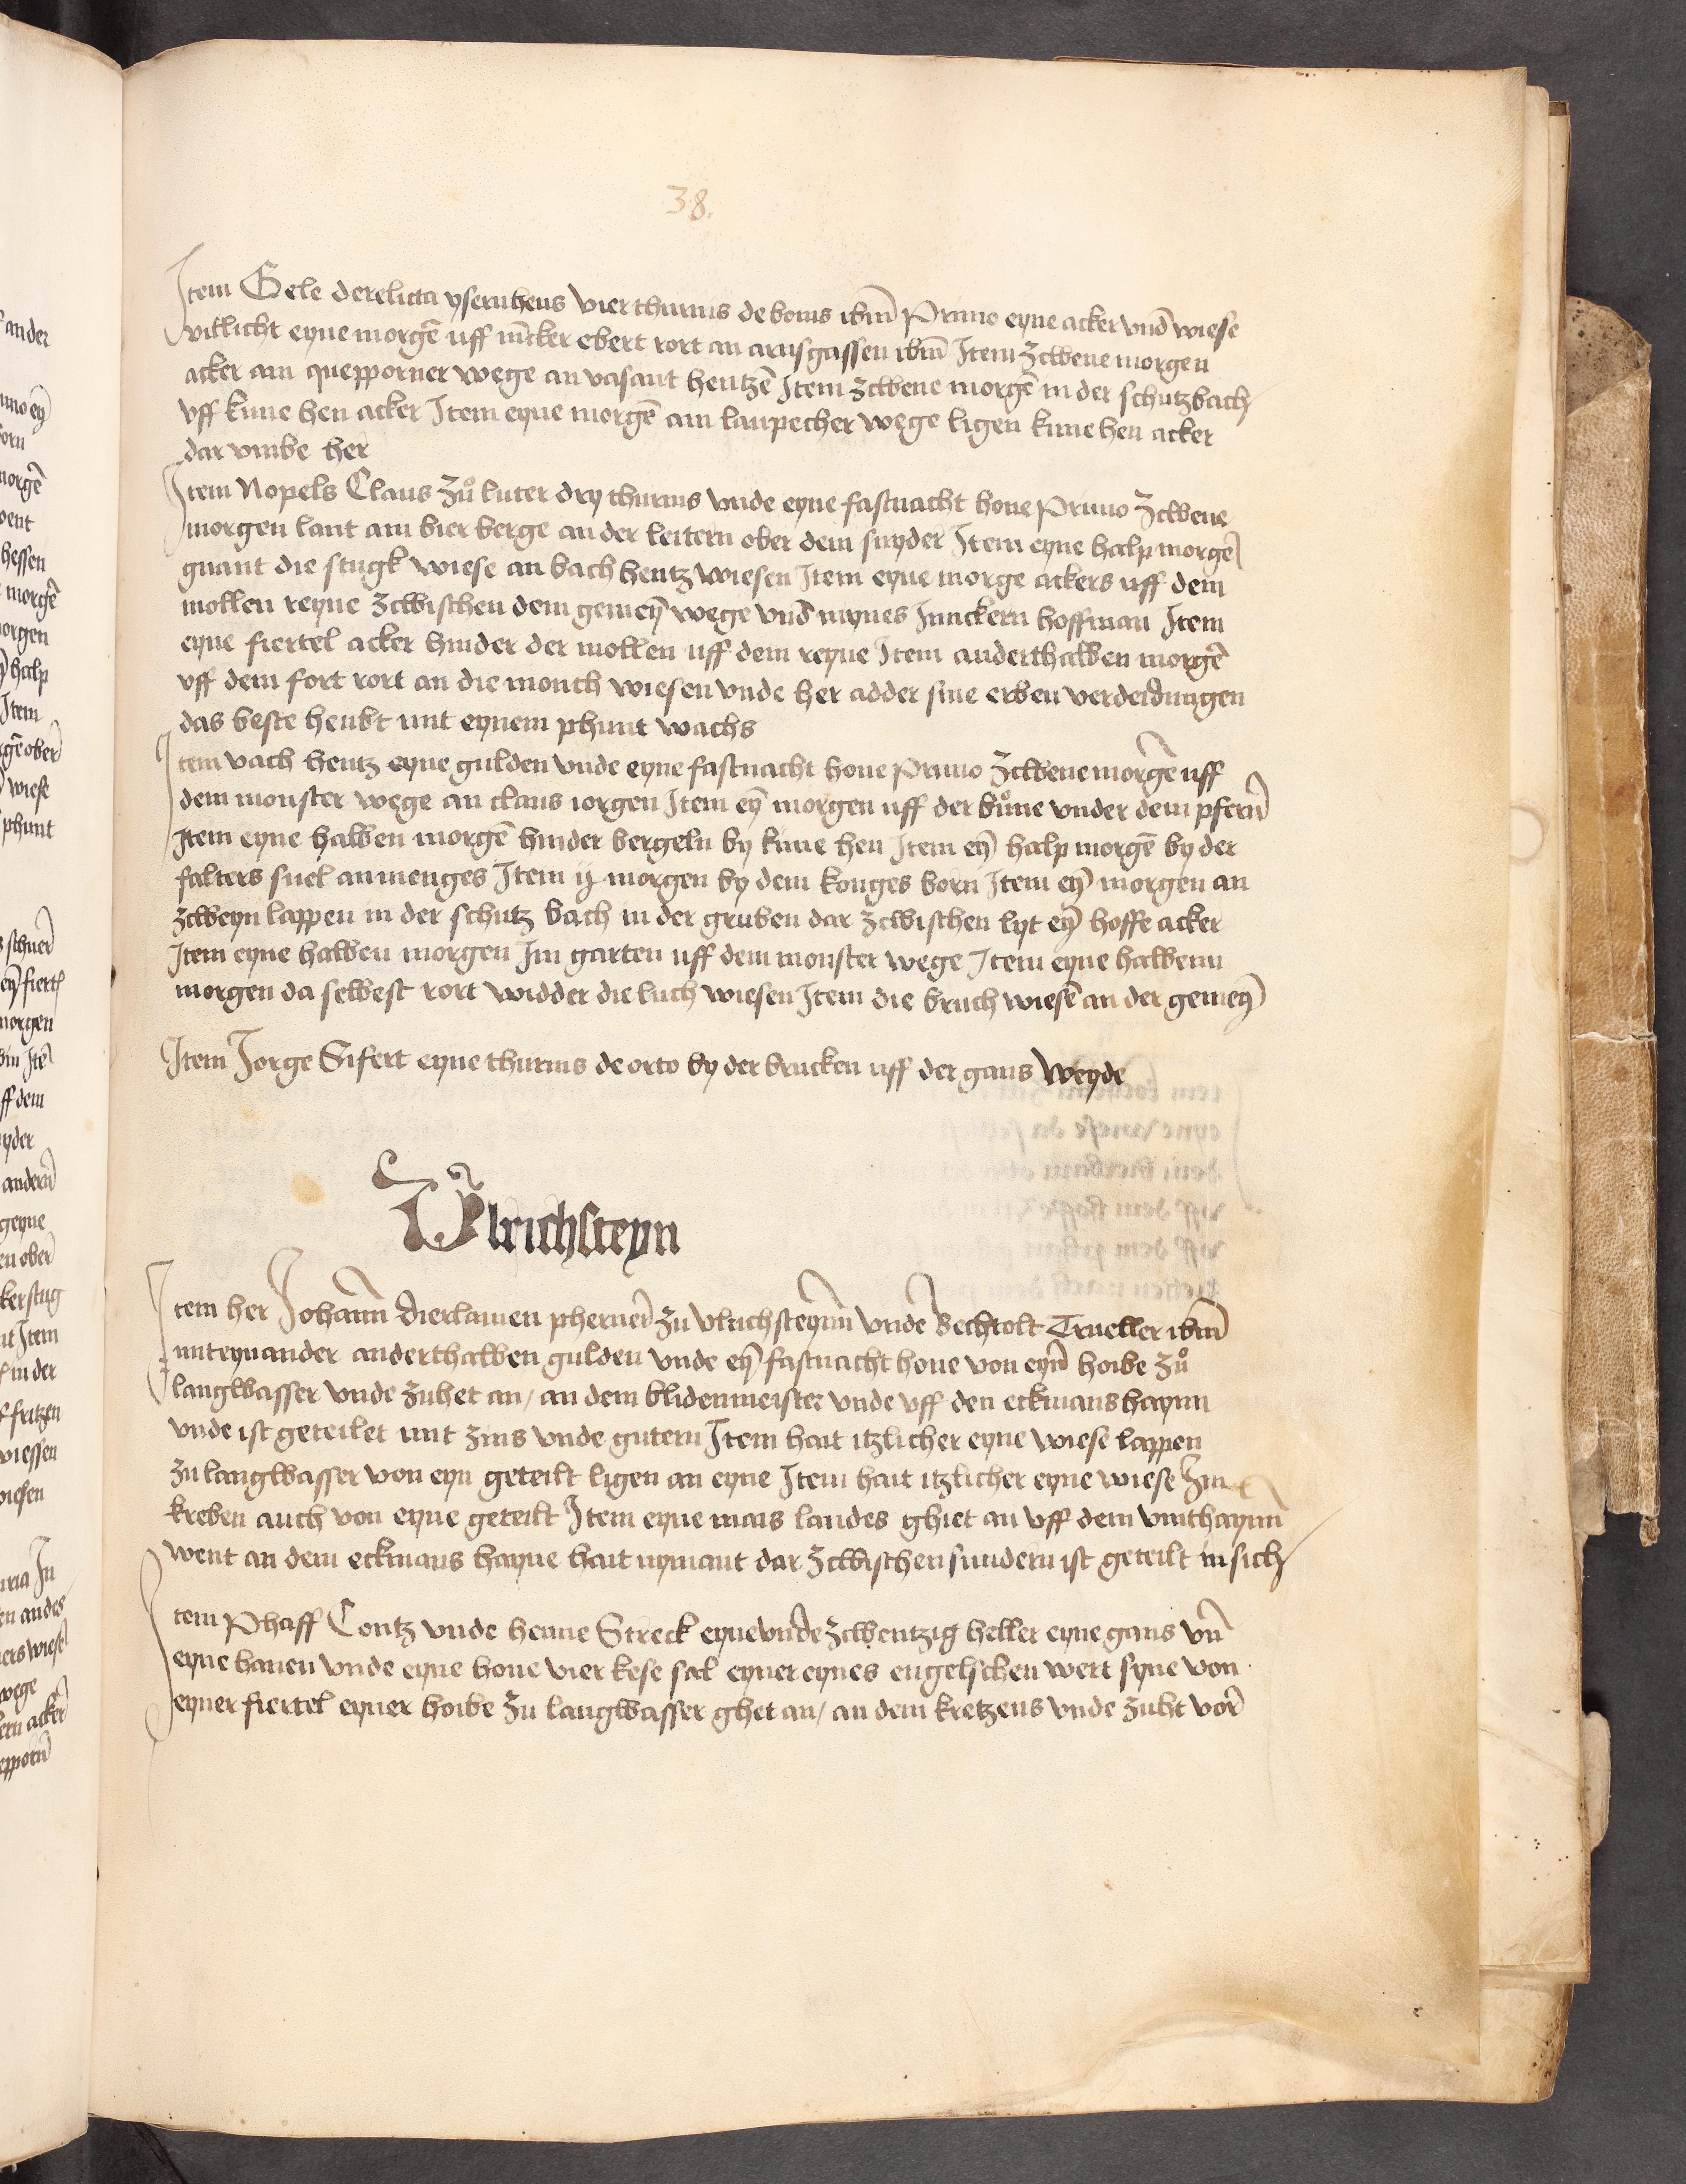 38.
Item Gele derelicta ysernhens vier thurnis de bonis ibm̄ Primo eyne acker vnd̄ wiese
villicht eyne morgē uff iūcker ebert rort an arnsgassen ibm̄ Item zcwene morgen
acker am quepporner wege an vasant hentzē Item zcwene morgē in der schutzbach
vff kune hen acker Item eyne morgē am lanpecher wege ligen kune hen acker
dar vmbe her
Item Nopels Claus zů luter dry thurnis vnde eyne fastnacht hone Primo zcwene
morgen lant am bier berge an der leitern ober dem snyder Item eyne halp morgē
gnant die stugk wiese an bach hentz wiesen Item eyne morge ackers uff dem
mollen reyne zcwischen dem gemeyn̄ wege vnd̄ mynes Junckern hoffman Item
eyne fiertel acker hinder der mollen uff dem reyne Item anderthalben morgē
vff dem fort rort an die monch wiesen vnde her adder sine erben verdeidungen
das beste heubt mit eynem phunt wachs
Item vach hentz eyne gulden vnde eyne fastnacht hone Primo zcwene morgē uff
dem monster wege an claus iorgen Item eyn̄ morgen uff der bůne vnder dem pfern̄
Item eyne halben morgē hinder bergeln by kune hen Item eyn̄ halp morgē by der
falters suel an menges Item ij morgen by dem konges born Item eyn̄ morgen an
zcweyn lappen in der schutz bach in der gruben dar zcwischen lyt eyn̄ hoffe acker
Item eyne halben morgen Im garten uff dem monster wege Item eyne halbenn
morgen da selbest rort widder die luch wiesen Item die bruch wiesē an der gemeyn̄
Item Jorge Sifert eyne thurnis de orto by der brucken uff der gans weyde
Vlrichsteyn
Item her Johann̄ dierlamen pherner̄ zu vlrichsteynn̄ vnde Bechtolt Trueller ibm̄
miteynander anderthalben gulden vnde eyn̄ fastnacht hone von eyn̄ hoibe zů
langwasser vnde zuhet an / an dem blidenmeister vnde vff den eckmans haynn
vnde ist geteilet mit zins vnde gutern Item hait itzlicher eyne wiese lappen
zu langwasser von eyn geteilt ligen an eyne Item hait itzlicher eyne wiese zin
kreben auch von eyne geteilt Item eyne mais landes ghiet an vff dem vnthaynn̄
went an dem eckmans hayne hait nymant dar zcwischen sundern ist geteilt in sich
Item Phaff Contz vnde henne Streck eyne vnde zcwentzig heller eyne gans vn̄
eyne hanen vnde eyne hone vier kese sal eyner eynes engelschen wert syne von
eyner fiertel eyner hoibe zu langwasser ghet an / an dem kretzens vnde zuht vor̄